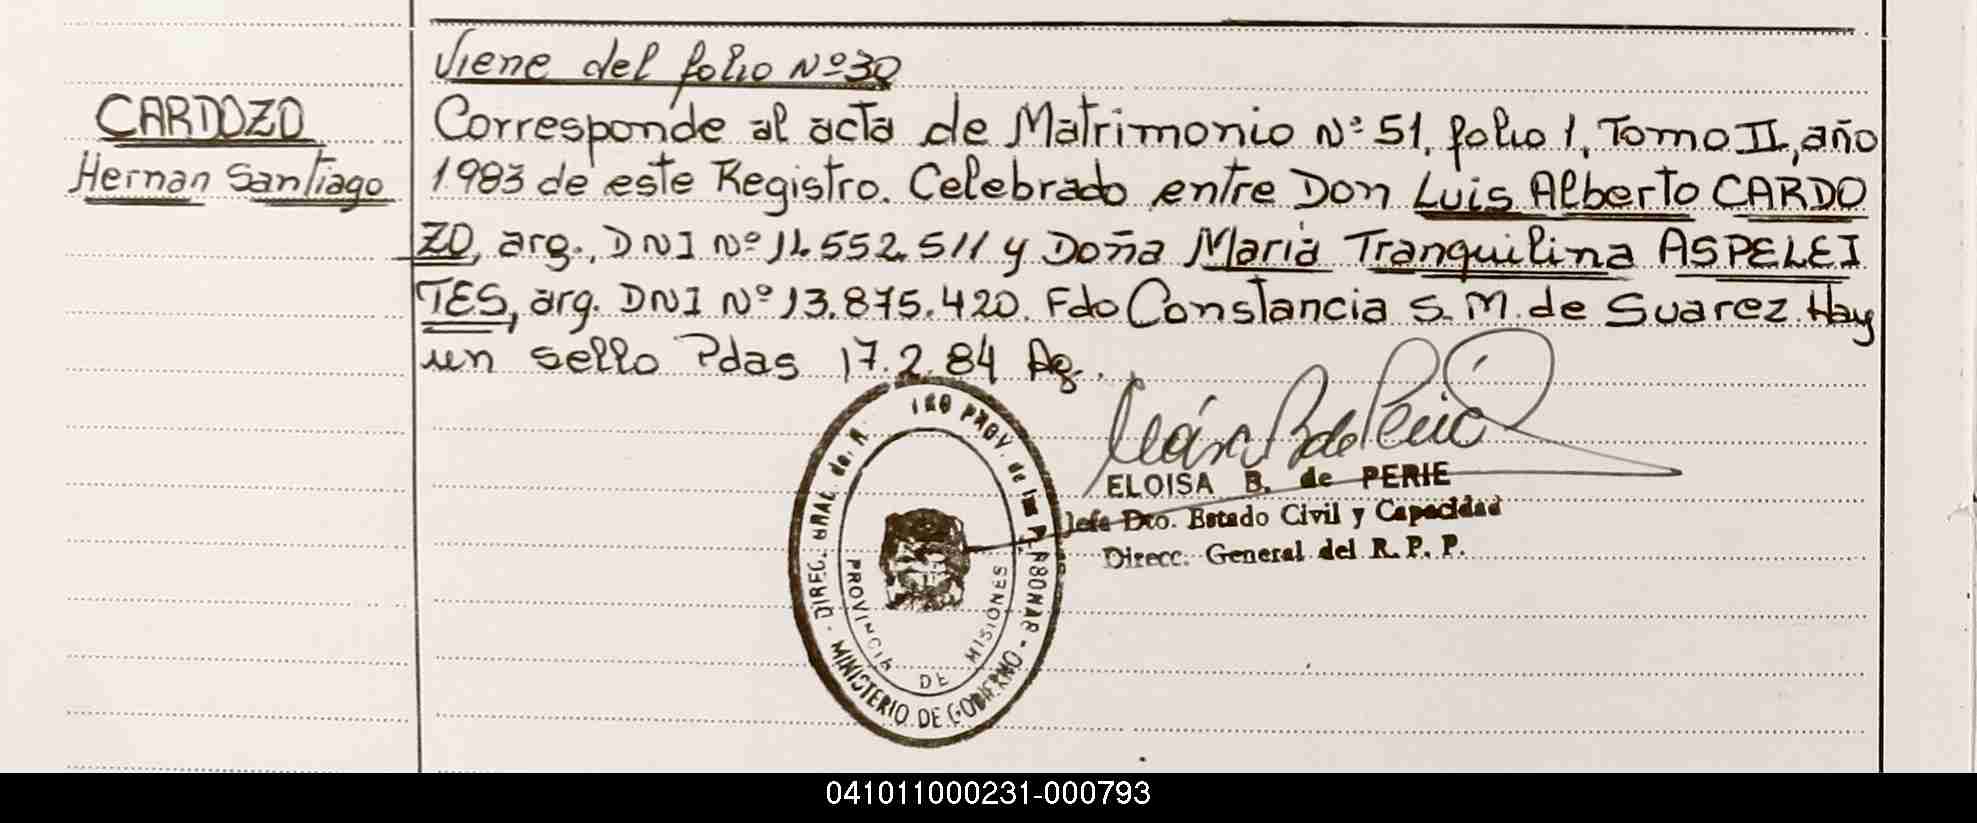 Viene del folio Nº 30
CARDOZO
Hernan Santiago
Corresponde al acta de Matrimonio Nº 51, folio 1, Tomo II, año
1983 de este Registro. Celebrado entre Don Luis Alberto CARDO
ZO, arg., DNI Nº 14.552.511 y Doña Maria Tranquilina ASPELEI
TES, arg. DNI Nº 13.875.420. Fdo Constancia S. M. de Suarez. Hay
un sello Pdas 17.2.84
ELOISA B. de PERIE
Jefa Dto. Estado Civil y Capacidad
Direcc. General del R. P. P.
DIREC. GRAL de. PROV. de las
MINISTERIO DE GOBIERNO
PROVINCIA DE MISIONES
041011000231-000793